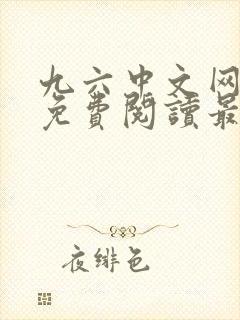 九六中文网
免費閱讀最
夜緋色